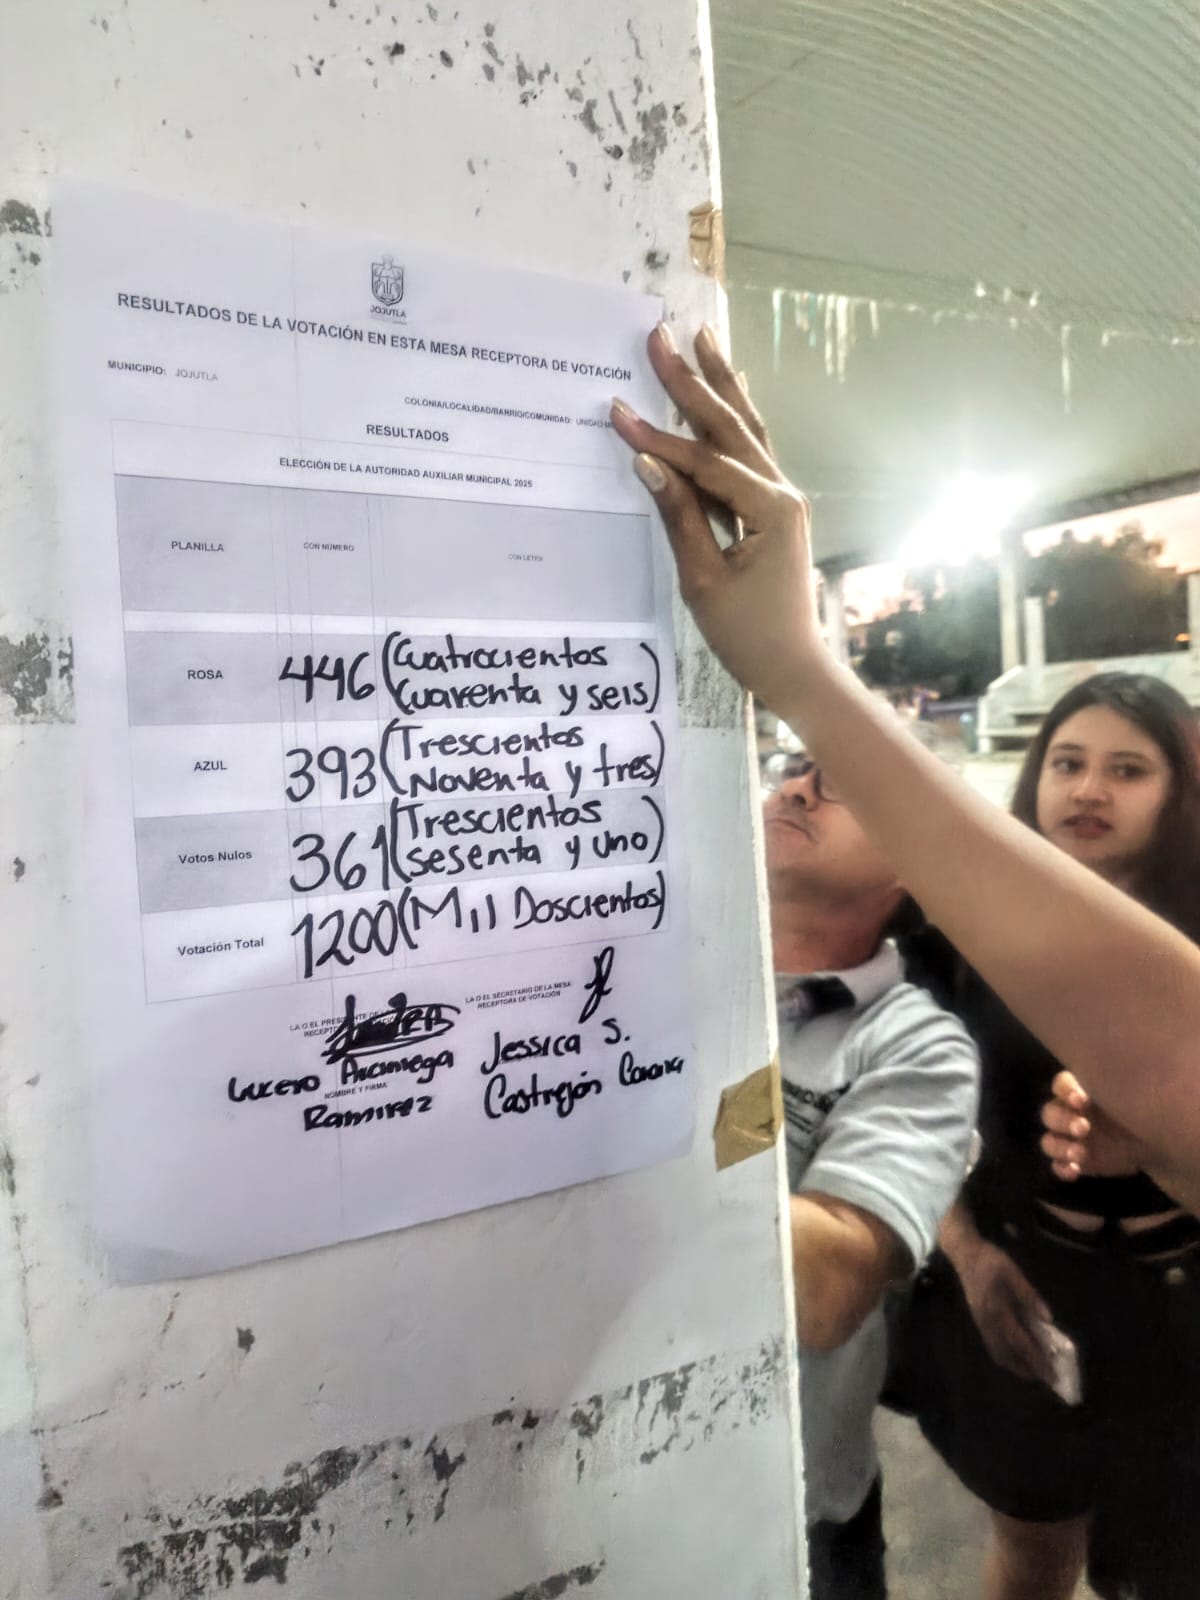 JOJUTLA
RESULTADOS DE LA VOTACIÓN EN ESTA MESA RECEPTORA DE VOTACIÓN
MUNICIPIO: JOJUTLA
COLONIA/LOCALIDAD/BARRIO/COMUNIDAD: UNIDAD
RESULTADOS
ELECCIÓN DE LA AUTORIDAD AUXILIAR MUNICIPAL 2025
PLANILLA CON NÚMERO CON LETRA
ROSA 446 (Cuatrocientos
Cuarenta y seis)
AZUL 393 (Trescientos
Noventa y tres)
Votos Nulos 361 (Trescientos
sesenta y uno)
Votación Total 1200 (Mil Doscientos)
LA O EL SECRETARIO DE LA MESA
RECEPTORA DE VOTACIÓN
Lucero Jessica S.
NOMBRE Y FIRMA
Ramirez Castrejón